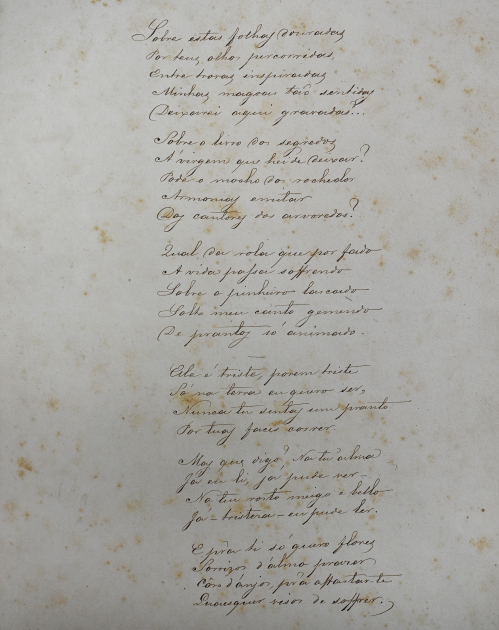 Sobre estas folhas douradas
Por teus olhos percorridas,
Entre trovas inspiradas
Minhas magoas tão sentidas
Deixarei aqui gravadas?...
Sobre o livro dos segredos
A virgem que hei de deixar?
Pode o mocho dos rochedos
Armonias emitar
Dos cantores dos arvoredos?
Qual da rola que por fado
A vida passa soffrendo
Sobre o pinheiro lascado
Solto meu canto gemendo
De prantos só animado.
Elle é triste, porem triste
Só na terra eu quero ser,
Nunca tu sintas um pranto
Por tuas faces correr.
Mas que digo? Na tu'alma
Já eu li, já pude ver
No teu rosto meigo e bello
Já - tristeza - eu pude ler.
E p'ra ti só quero flores
Sorrizos d'alma prazer
Côro d'anjos, p'ra affastar-te
Quaesquer visos de soffrer.